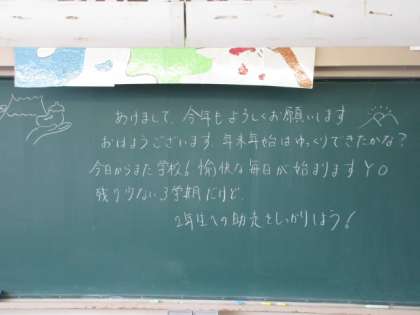 あけまして、今年もようしくお願いします
おはようございます。年末年始はゆっくりできたかな?
今日からまた学校!愉快な毎日が始まりますYO
残り少ない3学期だけど、
2年生への助走をしっかりしよう!